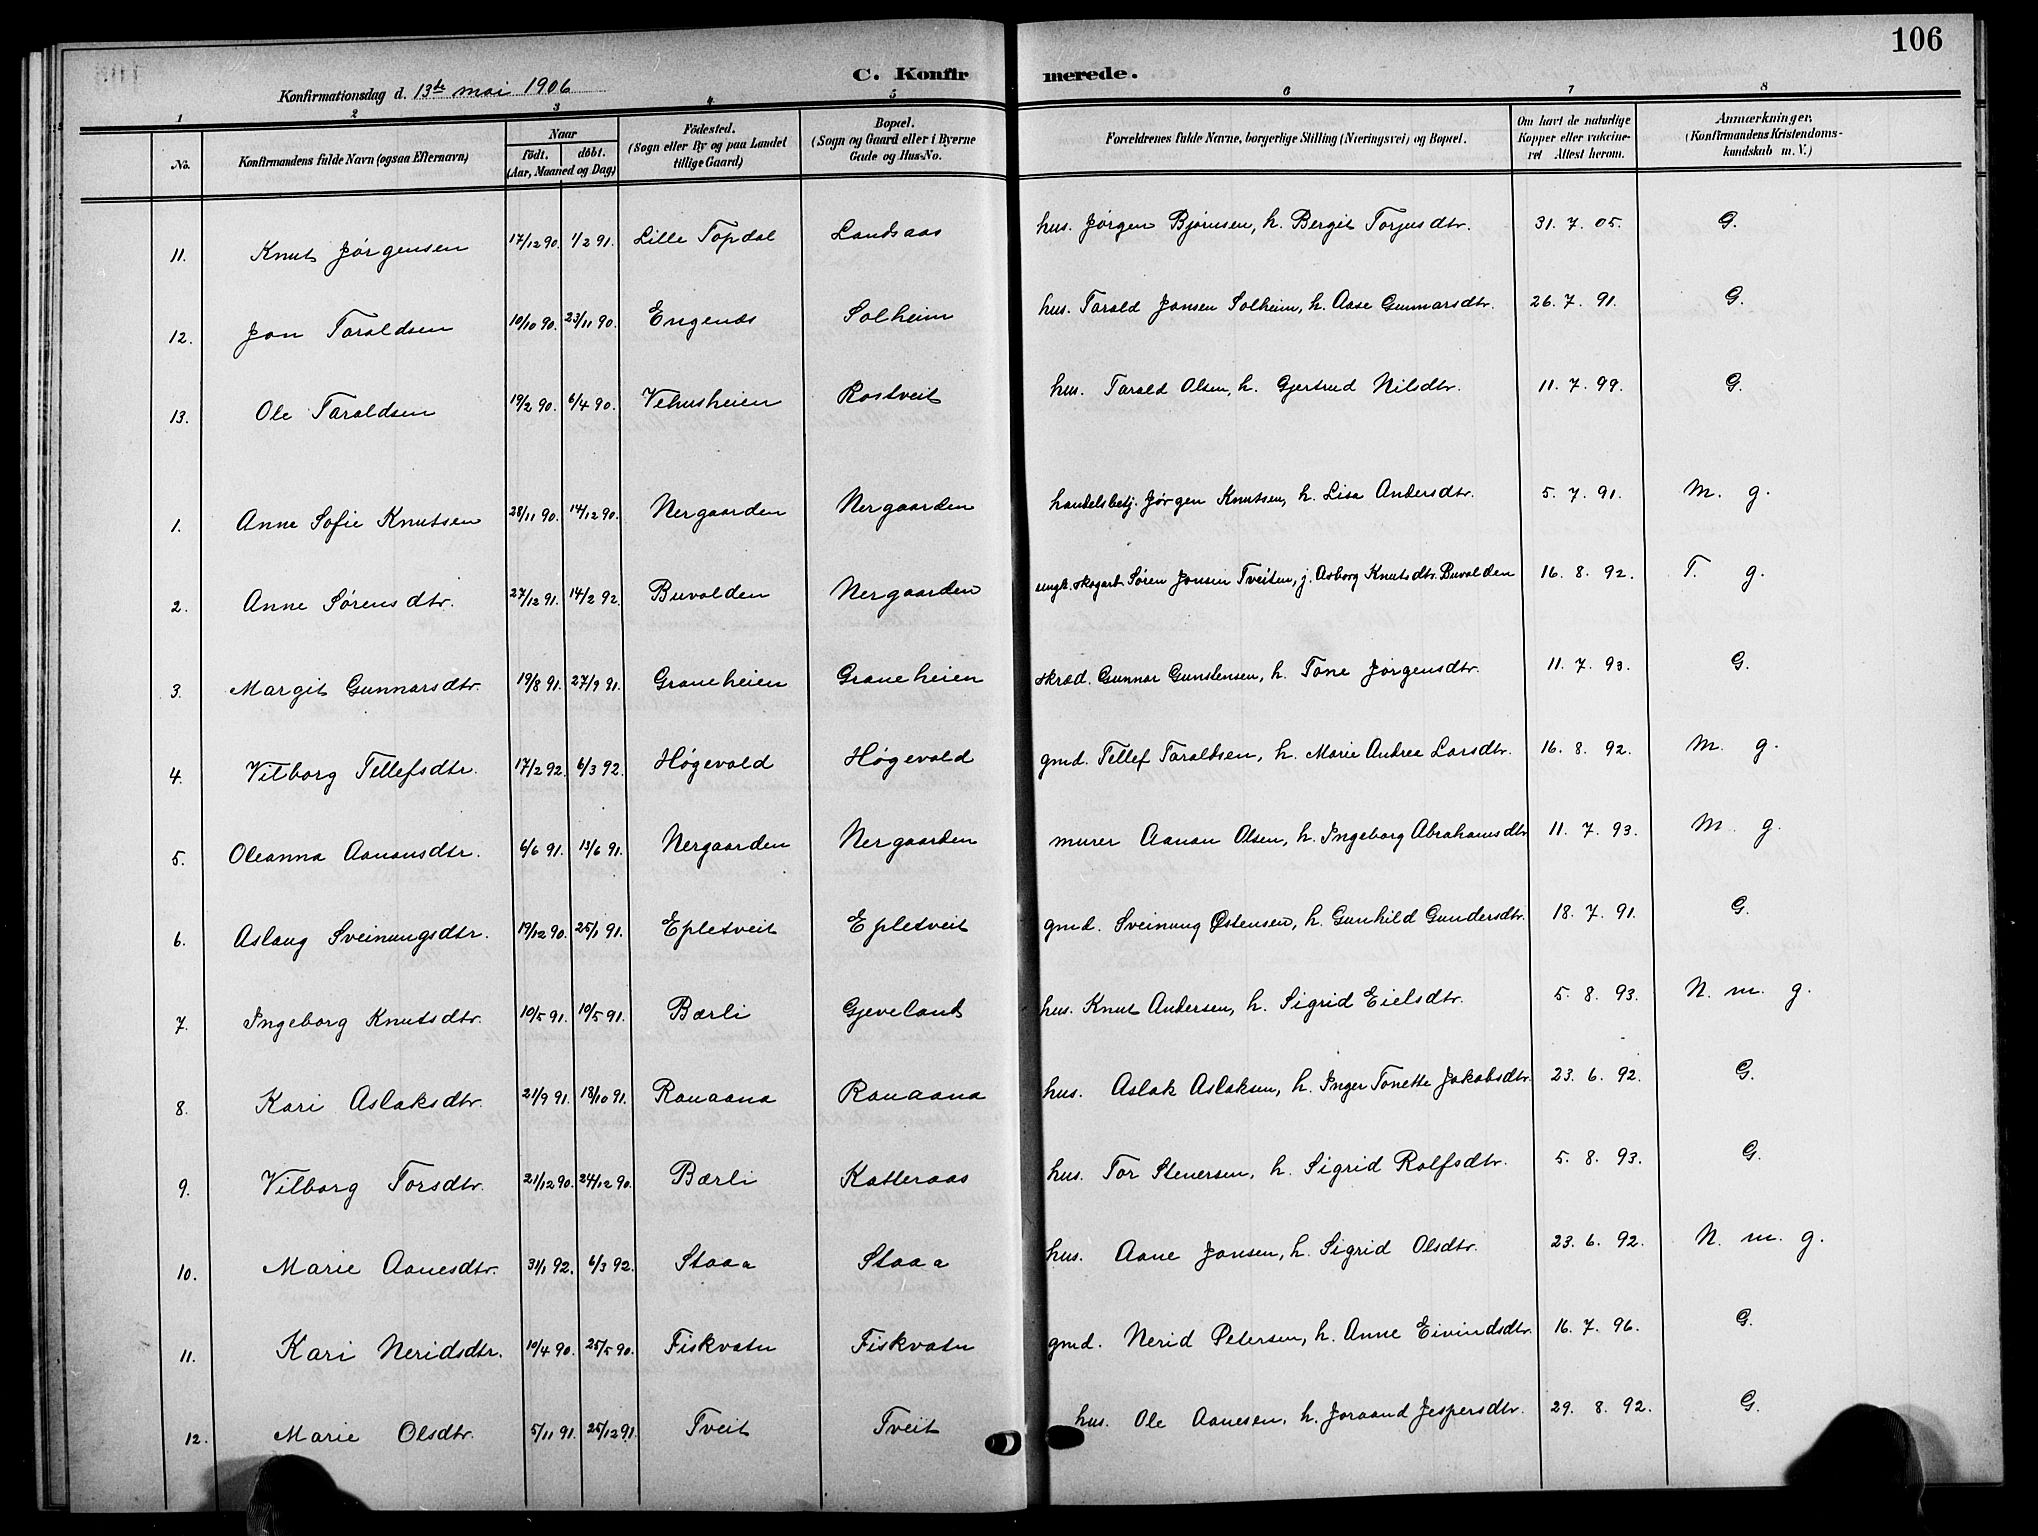 106
C. Konfirmerede.
Konfirmationsdag d. 13de mai 1906
1 2 3 4 5 6 7 8
No. Konfirmandens fulde Navn (ogsaa Efternavn) Naar født. døbt. (Aar, Maaned og Dag) Fødested. (Sogn eller By og paa Landet tillige Gaard) Bopæl. (Sogn og Gaard eller i Byerne Gade og Hus-No. Forældrenes fulde Navne, borgerlige Stilling (Næringsvei) og Bopæl. Om havt de naturlige Kopper eller vakcineret Attest herom. Anmærkninger, (Konfirmandens Kristendomskundskab m. V.)
11. Knut Jørgensen 17/12 90. 1/2 91. Lille Topdal Landsaas hus. Jørgen Bjørnsen, h. Bergit Torjusdtr. 31. 7. 05. G.
12. Jon Taraldsen 10/10 90. 23/11 90. Engenæs Solheim hus. Tarald Jonsen Solheim, h. Aase Gunnarsdtr. 26. 7. 91. G.
13. Ole Taraldsen 19/2 90. 6/4 90. Vehusheien Rostveit hus. Tarald Olsen, h. Gjertrud Nilsdtr. 11. 7. 99. G.
1. Anne Sofie Knutsen 28/11 90. 14/12 90. Nergaarden Nergaarden handelsbetj. Jørgen Knutsen, h. Lisa Andersdtr. 5. 7. 91. M. g.
2. Anne Sørensdtr. 27/12 91. 14/2 92. Buvolden Nergaarden ungk. skogarb. Søren Jonsen Tveiten, j. Asborg Knutsdtr. Buvolden 16. 8. 92. T. g.
3. Margit Gunnarsdtr. 19/8 91. 27/9 91. Graneheien Graneheien skræd. Gunnar Gunstensen, h. Tone Jørgensdtr. 11. 7. 93. G.
4. Vilborg Tellefsdtr. 17/2 92. 6/3 92. Høgevold Høgevold gmd. Tellef Taraldsen, h. Marie Andrea Larsdtr. 16. 8. 92. M. g.
5. Oleanna Aanonsdtr. 6/6 91. 13/6 91. Nergaarden Nergaarden murer Aanon Olsen, h. Ingeborg Abrahamsdtr. 11. 7. 93. M. g.
6. Aslaug Sveinungsdtr. 19/12 90. 25/1 91. Epletveit Epletveit gmd. Sveinung Østensen, h. Gunhild Gundersdtr. 18. 7. 91. G.
7. Ingeborg Knutsdtr. 10/5 91. 19/5 91. Bærli Gjeveland hus. Knut Andersen, h. Sigrid Eielsdtr. 5. 8. 93. N. m. g.
8. Kari Aslaksdtr. 21/9 91. 18/10 91. Ranaana Ranaana hus. Aslak Aslaksen, h. Inger Tonette Jakobsdtr. 23. 6. 92. G.
9. Vilborg Torsdtr. 21/12 90. 24/12 90. Bærli Katteraas hus. Tor Stenersen, h. Sigrid Rolfsdtr. 5. 8. 93. G.
10. Marie Aanesdtr. 31/1 92. 6/3 92. Staaa Staaa hus. Aane Jonsen, h. Sigrid Olsdtr. 23. 6. 92. N. m. g.
11. Kari Neridsdtr. 10/4 90. 25/5 90. Fiskvatn Fiskvatn gmd. Nerid Petersen, h. Anne Eivindsdtr. 16. 7. 96. G.
12. Marie Olsdtr. 5/11 91. 25/12 91. Tveit Tveit hus. Ole Aanesen, h. Joraand Jespersdtr. 29. 8. 92. G.